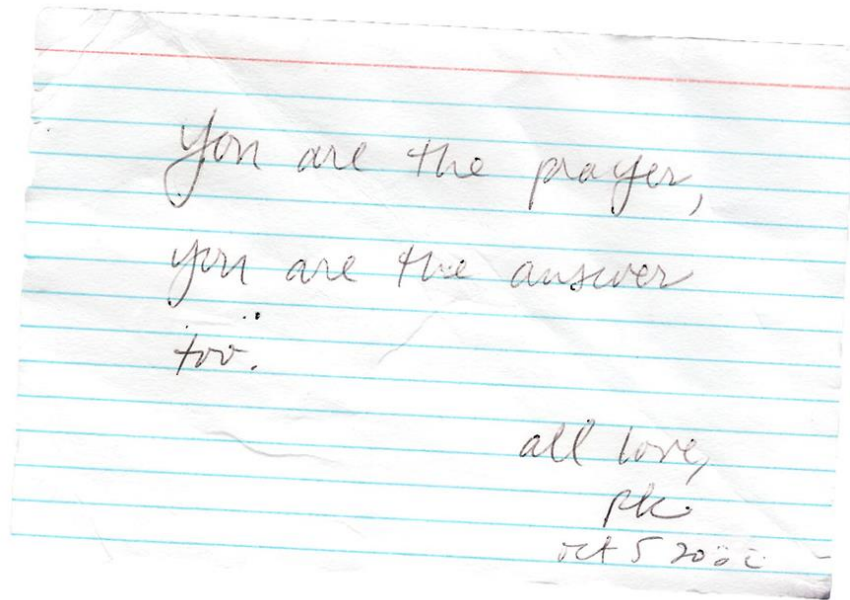 you are the prayer,
you are the answer
too.
all love,
pk
oct 5